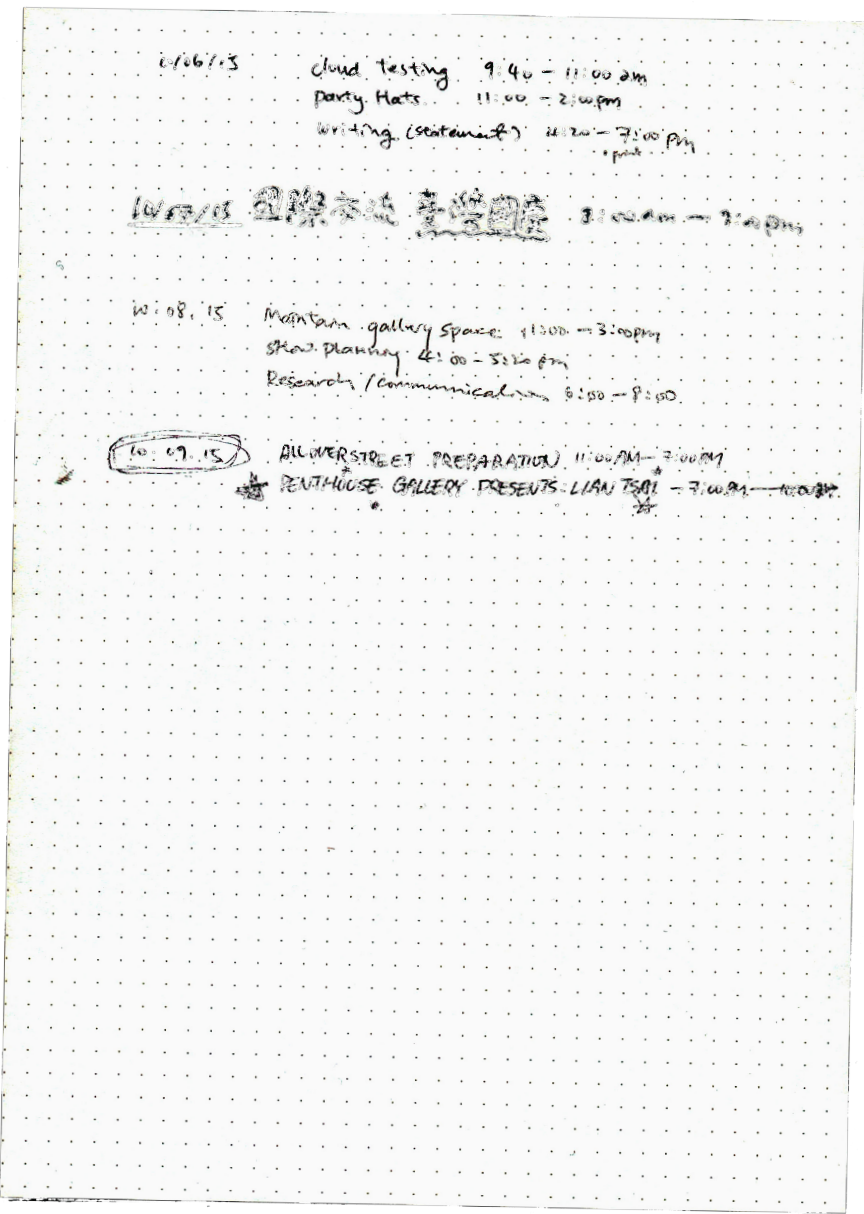 10/06/15 cloud testing 9:40 - 11:00 am
party Hats 11:00 - 2:00pm
writing (statement) 4:20 - 7:00 pm
• print
10/07/15 國際交流 臺灣國慶 - pm
10.08.15 Maintain gallery space 11:00 - 3:00pm
show planning 4:00 - 5:20 pm
Research / communications 6:00 - 8:00
10.09.15 ALL OVERSTREET PREPARATION 11:00AM - 7:00PM
PENTHOUSE GALLERY PRESENTS: LIAN TSAI - 7:00PM -